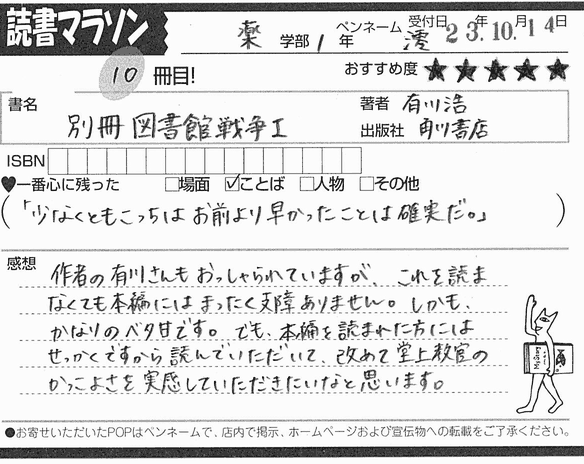 読書マラソン
薬 学部 1 年 ペンネーム 澪 受付日 23年10月14日
10 冊目! おすすめ度 ★★★★★
書名 別冊 図書館戦争I
著者 有川浩
出版社 角川書店
ISBN
♥一番心に残った □場面 ☑ことば □人物 □その他
(「少なくともこっちは お前より早かったことは確実だ。」)
感想
作者の有川さんもおっしゃられていますが、これを読ま
なくても本編にはまったく支障ありません。しかも、
かなりのベタ甘です。でも、本編を読まれた方には
せっかくですから読んでいただいて、改めて堂上教官の
かっこよさを実感していただきたいなと思います。
●お寄せいただいたPOPはペンネームで、店内で掲示、ホームページおよび宣伝物への転載をご了承ください。